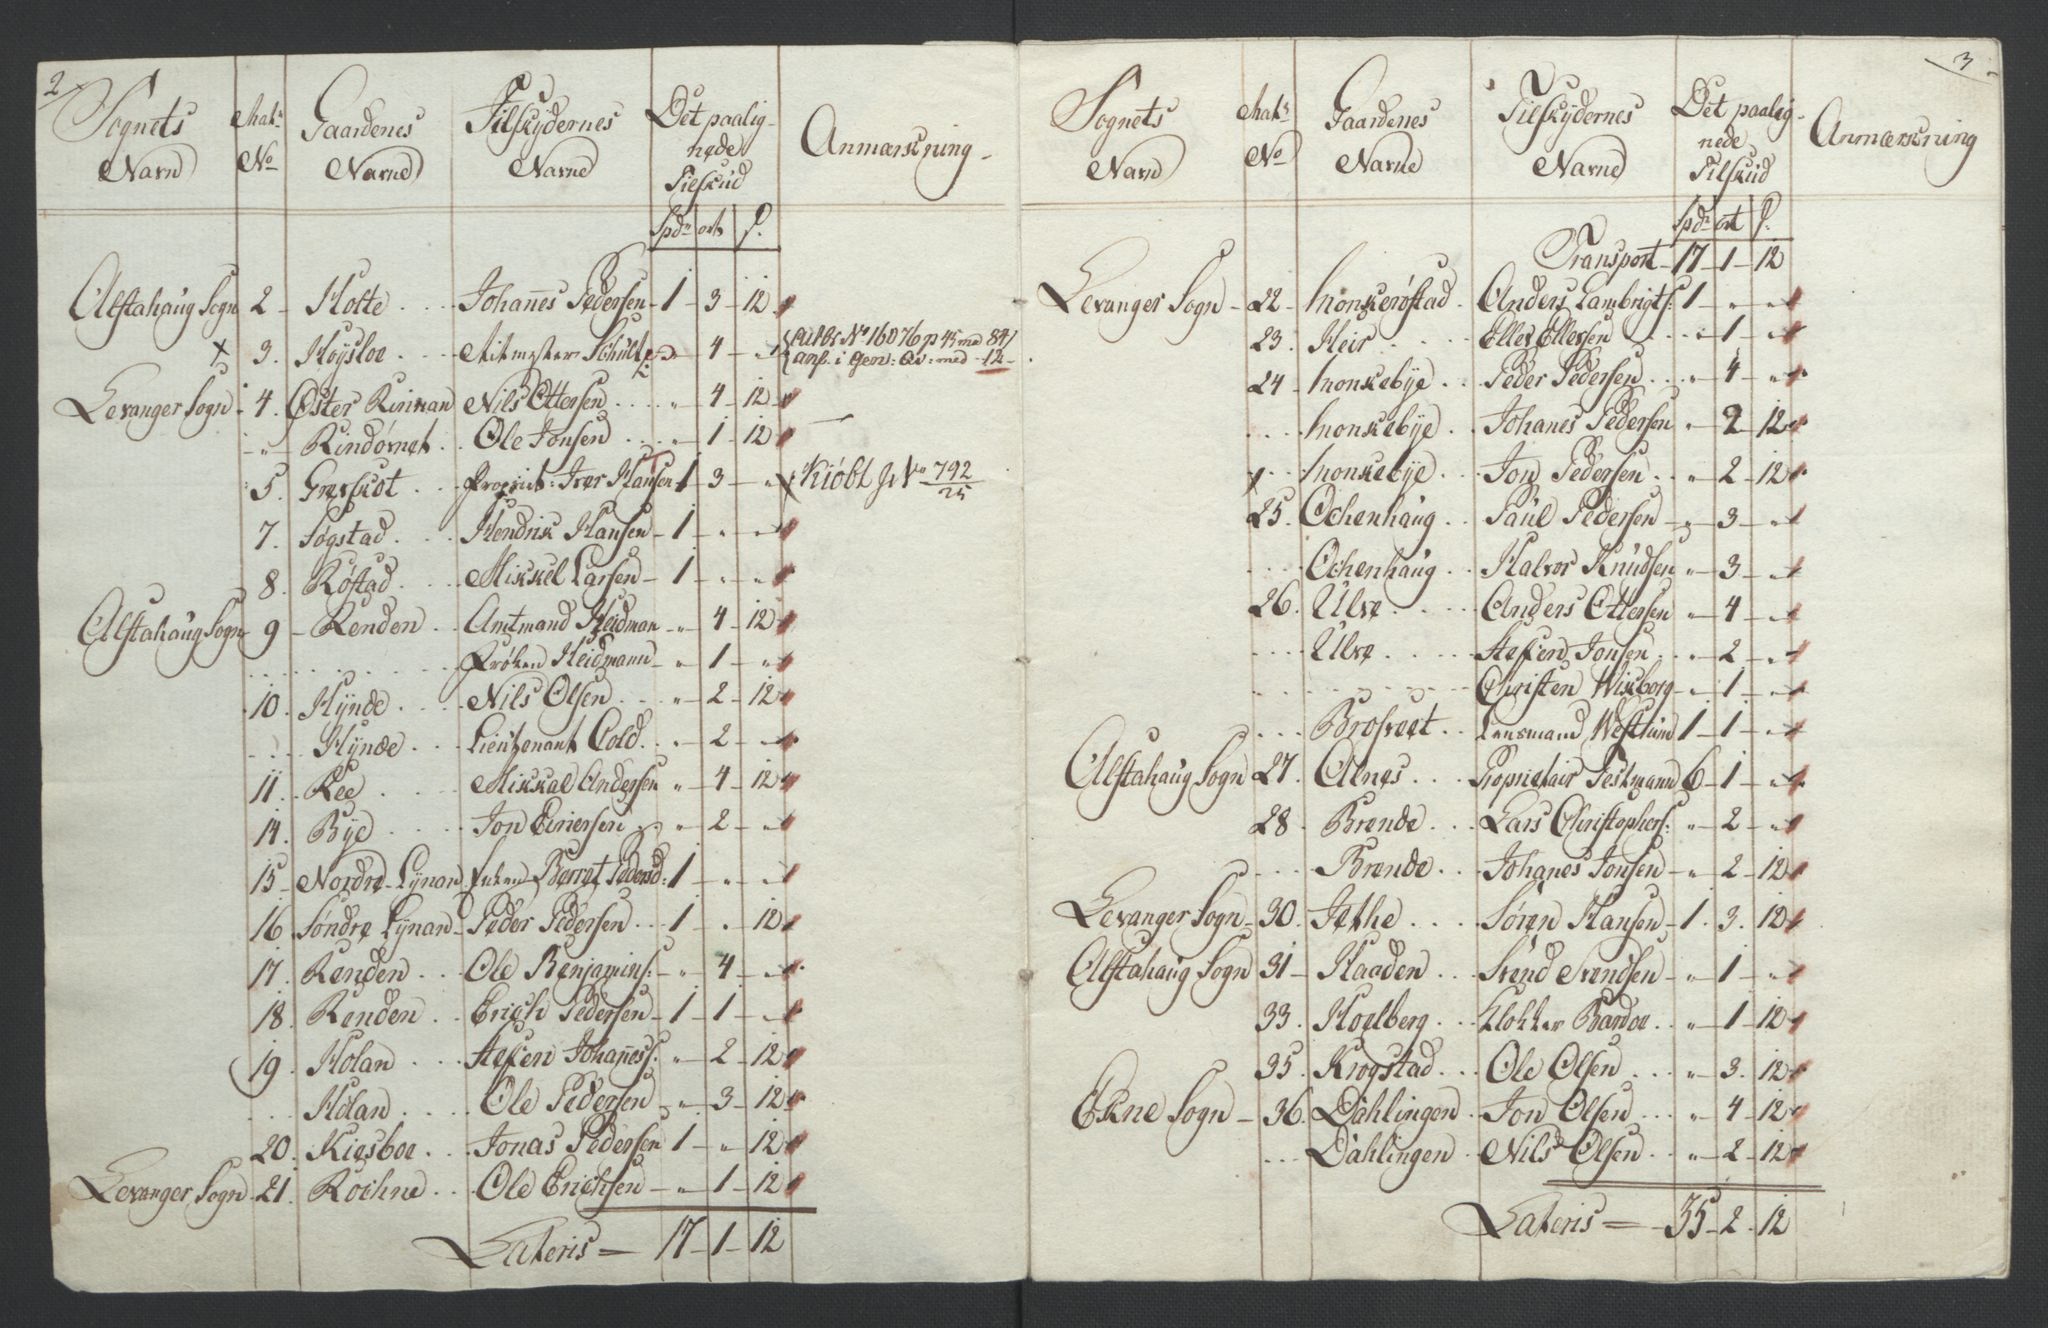 2
Sognets Navn | Matr No | Gaardenes Navne | Tilskydernes Navne | Det paalignede Tilskud | Anmærkning
Spdr | ort | ß.
Alstahaug Sogn 2 - Holte . . . Johannes Pedersen - 1 - 3 - 12
x 3. Høysloe . . . Ritmester Schultz " 4 - "
Levanger Sogn - 4. Øster Rinnan Nils Ottersen . . . " - 4 - 12
- " - Rindørnet . . Ole Jonsen . . . " - 1 - 12
5. Grevskot . . . Propriet: Iver Hansen 1 - 3 - " Kiøbt JN No 792/25
7. Søgstad . . . Hendrik Hansen - 1 - " - "
8. Røstad . . . Mikkel Larsen - 1 - " - "
Alstahaug Sogn 9 - Renden . . Amtmand Heidman - " - 4 - 12
. . . . . . Frøken Heidmann - " - 1 - "
10. Hynde . . . Nils Olsen . . . " - 2 - 12
. . . Hynde . . . Lieutenant Cold . . " - 2 - "
11. Ree . . . Mikkal Andersen " - 4 - 12
14. Bye . . . Jon Eeriersen . . " - 2 - "
15 - Nordre Lynan Enken Berret Pedersd: 1 - " - "
16 Søndre Lynan - Peder Pedersen . . . 1 - " - 12
17. Renden . . . Ole Benjamins: - " - 4 - "
18. Renden . . Erich Pedersen - 1 - 1 - "
19. Holan . . . Steffen Johanness: " - 2 - 12
. . . Holan . . . Ole Pedersen - " - 3 - 12
20. Kiesboe . . . Jonas Pedersen 1 - " - 12
Levanger Sogn - 21. Rochne . . Ole Erichsen - " - 1 - 12
Lateris = 17 - 1 - 12
3
Sognets Navn | Matr No | Gaardenes Navne | Tilskydernes Navne | Det paalignede Tilskud | Anmærkning
Spdr | ort | ß.
Transport - 17 - 1 - 12
Levanger Sogn - 22 - Monkerøstad . Anders Lambrigts: 1 - " - "
23. Heir . . . Eller Ellevsen . . " 1 - "
24 - Monskebye . . Peder Pedersen . . . " - 4 - "
. . . . Monskebye . Johanes Pedersen " - 2 - 12
. . . Monskebye . . Jon Pedersen . . " - 2 - 12
25. Ochenhaug . . Paul Pedersen - " - 3 - "
. . . . Ochenhaug . . Halvor Knudsen " - 3 - "
26. Ulve . . . . Anders Ottersen " - 4 - "
. . . . Ulve . . . . Steffen Jonsen . . " - 2 - "
. . . . . . Christen Wixborg - " - 1 - "
. . . Brosveet . Lensmand Westrum 1 - 1 - "
Alstahaug Sogn 27. Alnes . . . Proprietair Jestmann 6 - 1 - "
28 . Brende . . . Lars Christophers: " - 2 - "
. . . Brende . . . Johanes Jonsen - " - 2 - 12
Levanger Sogn - 30. Jethe . . . . Søren Hansen - 1 . 3. 12
Alstahaug Sogn 31 - Haaden . . . Svend Svendsen - " - 1 - "
33. Hoelberg . . . Klokker Bardoe . . " - 1 - 12
35. Krogstad . . . Ole Olsen . . . " - 3. 12
Ekne Sogn - 36. Dahlingen . Jon Olsen . . . " - 4 - 12
. . . Dahlingen . Nils Olsen . . " - 2 - 12
Lateris = - 35 - 2 - 12